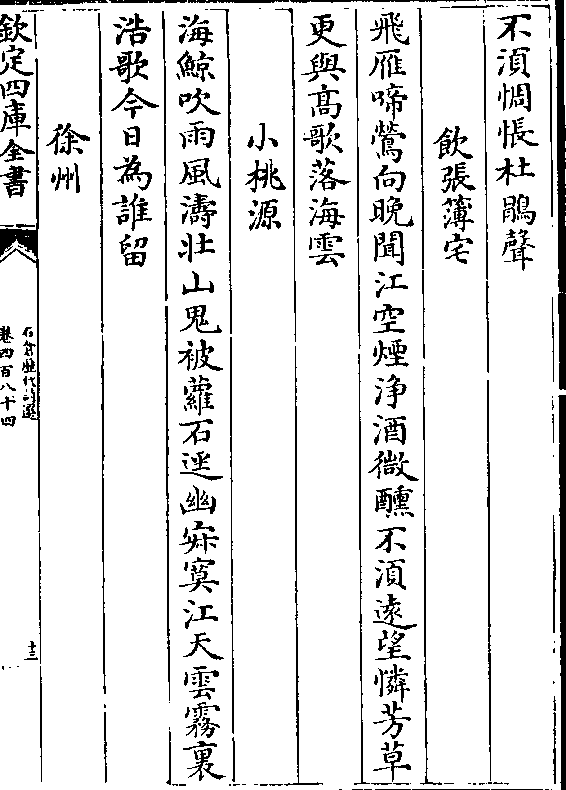 不湏惆悵杜鵑聲
飲張簿宅
飛雁啼鶯向晚聞江空煙浄酒微醺不湏遠望憐芳草
更與髙歌落海雲
小桃源
海鯨吹雨風濤壯山鬼被蘿石逕幽寂寞江天雲霧裏
浩歌今日為誰留
徐州
欽定四庫全書
石倉歴代詩選
卷四百八十四
十三